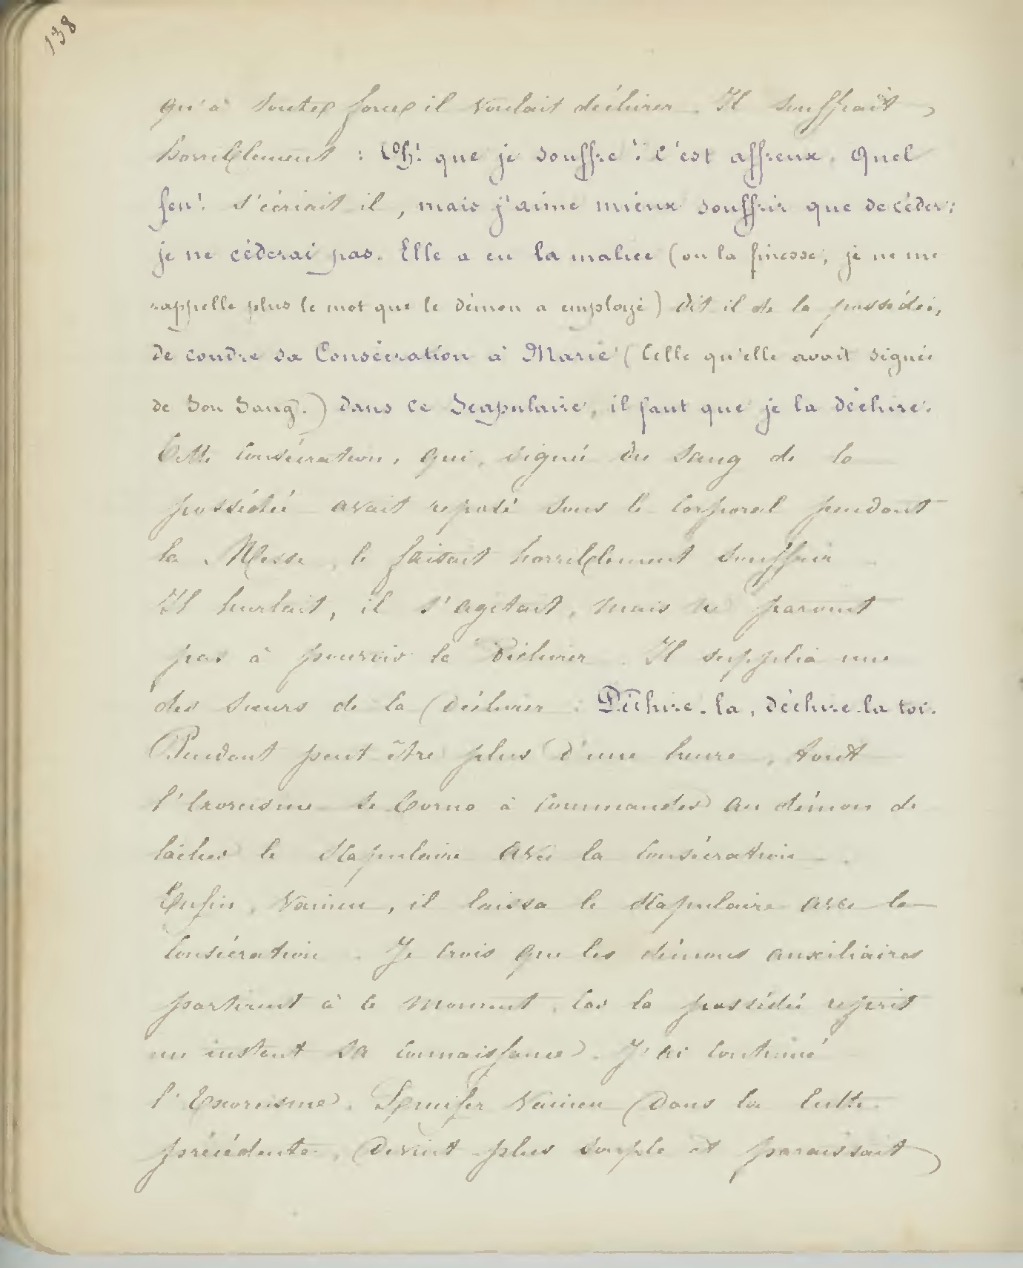 138
qu'à toutes forces il voulait déchirer. Il souffrait
horriblement : Oh! que je souffre! C'est affreux. Quel
feu! s'écriait il, mais j'aime mieux souffrir que de céder;
je ne céderai pas. Elle a eu la malice (ou la finesse, je ne me
rappelle plus le mot que le démon a employé) dit il de la possédée,
de coudre sa Consécration à Marie (Celle qu'elle avait signée
de son sang.) dans ce Scapulaire, il faut que je la déchire.
Cette Consécration, qui, signée du sang de la
possédée avait reposé sous le Corporal pendant
la Messe, le faisait horriblement souffrir.
Il hurlait, il s'agitait, mais ne parvint
pas à pouvoir la déchirer. Il supplia une
des sœurs de la déchirer : Déchire-la, déchire-la toi.
Pendant peut être plus d'une heure, tout
l'Exorcisme se borna à commander au démon de
lâcher le Scapulaire avec la Consécration.
Enfin, vaincu, il laissa le Scapulaire avec la
Consécration. Je crois que les démons auxiliaires
partirent à ce moment, car la possédée reprit
un instant sa connaissance. J'ai continué
l'Exorcisme. Lucifer vaincu dans la lutte
précédente, devint plus souple et paraissait